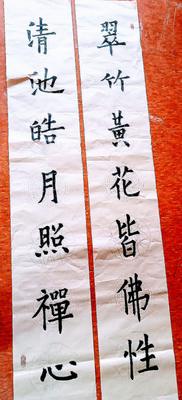 翠竹黃花皆佛性
清池皓月照禪心